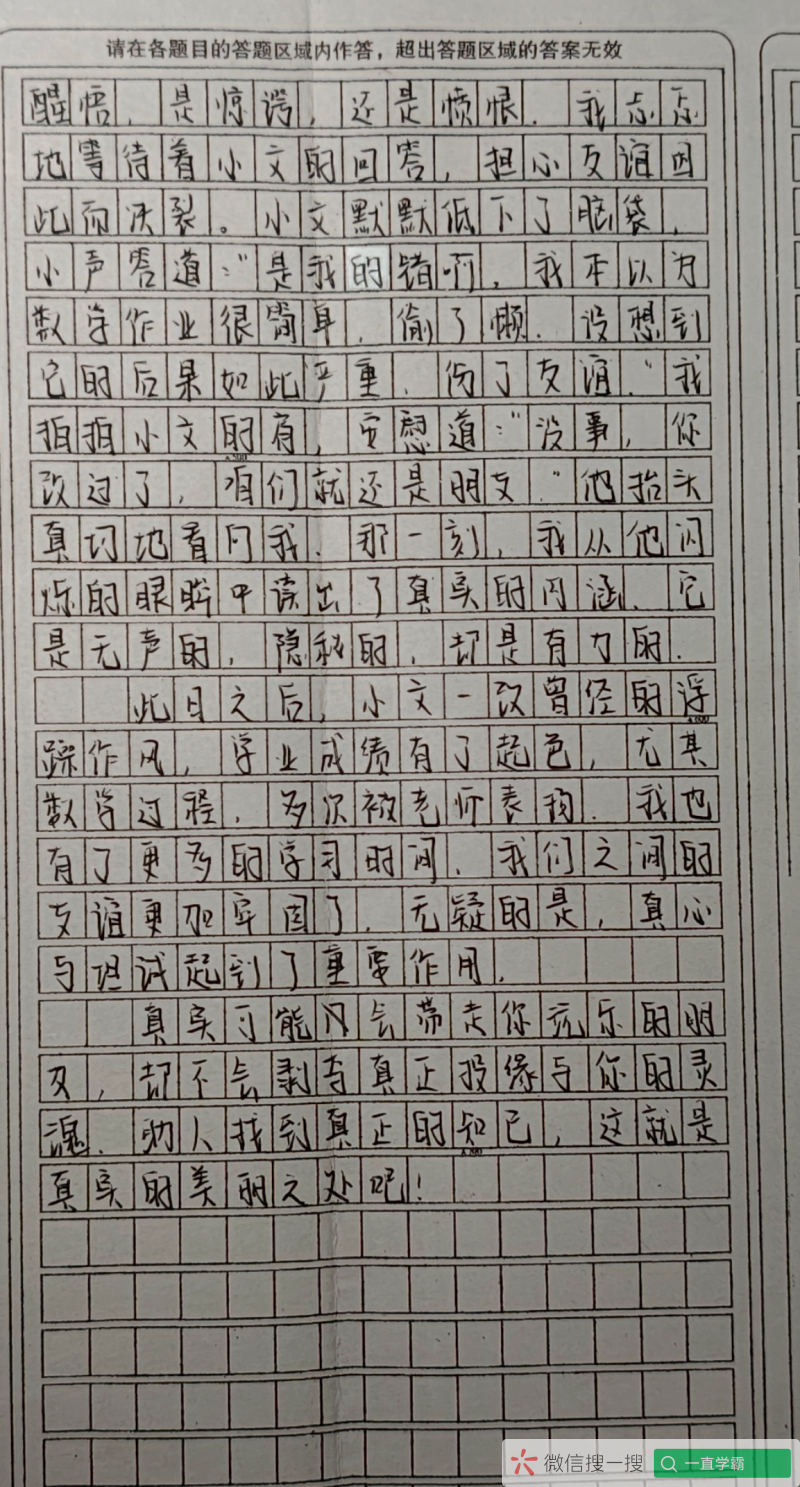 请在各题目的答题区域内作答，超出答题区域的答案无效
醒悟，是惊愕，还是愤恨．我忐忑
地等待着小文的回答，担心友谊因
此而决裂。小文默默低下了脑袋，
小声答道：“是我的错啊，我本以为
数学作业很简单，偷了懒．没想到
它的后果如此严重．伤了友谊．”我
拍拍小文的肩，安慰道：“没事，你
▲500
改过了，咱们就还是朋友．”他抬头
真切地看向我．那一刻，我从他闪
烁的眼眸中读出了真实的内涵．它
是无声的，隐秘的，却是有力的．
此日之后，小文一改曾经的浮
▲600
躁作风，学业成绩有了起色，尤其
数学过程．多次被老师表扬．我也
有了更多的学习时间．我们之间的
友谊更加牢固了．无疑的是，真心
与坦诚起到了重要作用．
真实可能只会带走你玩乐的朋
友，却不会剥夺真正投缘与你的灵
魂．助人找到真正的知己，这就是
▲800
真实的美丽之处吧！
微信搜一搜
一直学霸